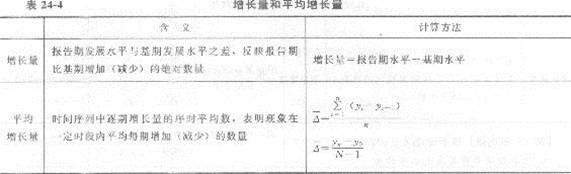 表 24-4 增长量和平均增长量
含 义 计算方法
增长量 报告期发展水平与基期发展水平之差、反映报告期
比基期增加（减少）的绝对数量
增长量=报告期水平-基期水平
平均
增长量
时间序列中逐期增长量的序时平均数，表明现象在
一定时段内平均每期增加（减少）的数量
Δ̄=Σ(yᵢ-yᵢ₋₁)/n
Δ̄=(yₙ-y₀)/(N-1)